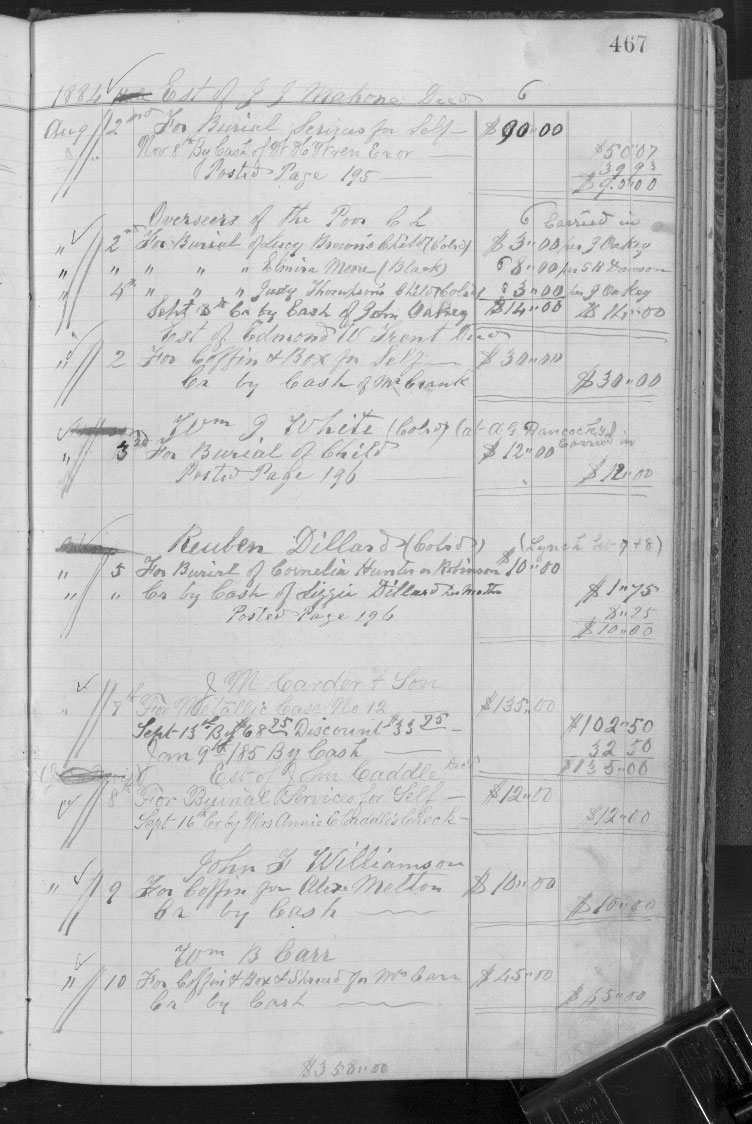 467
1884 Est of J J Mahone Decd 6
Aug 2nd For Burial Serices for Self $90.00
Nov 8th By Cash of W H Wren Exor $50.07
Posted Page 195 39 93
$90.00
Overseers of the Poor C L 6 Carried in
" 2nd For Burial of Lucy Brown's Child (Colrd) $3.00 per J Oakey
" " " " " Elmira Moore (Black) 6 8.00 per S H Dawson
" 4th " " " Judy Thompson's Child (Colrd) 3.00 per J Oakey
Sept Cr by Cash of John Oakey $14.00 $14.00
Est of Edmond W Trent Decd
" 2 For Coffin & Box for Self $30.00
Cr by Cash of Mr Crank $30.00
Wm J White (Colrd) (at A G Hancocks)
" 3rd For Burial of Child $12.00 Carried in
Posted Page 196 $12.00
Reuben Dillard (Colrd) (Lynch 7 & 8)
" 5 For Burial of Cornelia Hunter or Robinson $10.00
" " Cr by Cash of Lizzie Dillard her Mother $1.75
Posted Page 196 8.25
$10.00
J M Carder & Son
" 8th For Metallic Case No 12 $135.00
Sept 13th By $68 25 Discount $33 25 $102.50
Jan 9th /85 By Cash 32 50
$135.00
Est of John Caddle Decd
" 8th For Bunrial Services for Self $12.00
Sept 16th Cr by Mrs Annie C Caddle's Check $12.00
John F Williamson
" 9 For Coffin for Alex Melton $10.00
Cr by Cash $10.00
Wm B Carr
" 10 For Coffin & Box & Shroud for Mrs Carr $45.00
Cr by Cash $45.00
$358.00